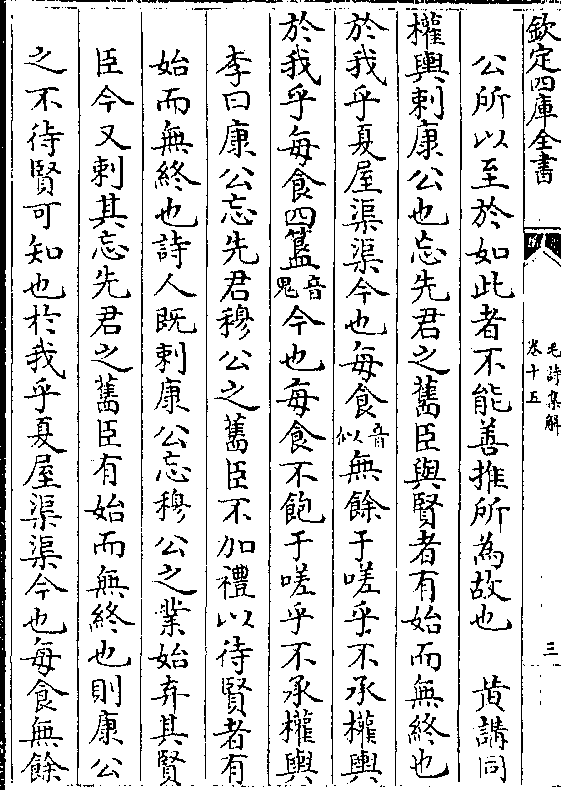 欽定四庫全書
毛詩集解
卷十五
三
公所以至於如此者不能善推所為故也　黄講同
權輿刺康公也忘先君之舊臣與賢者有始而無終也
於我乎夏屋渠渠今也每食音似無餘于嗟乎不承權輿
於我乎每食四簋音鬼今也每食不飽于嗟乎不承權輿
李曰康公忘先君穆公之舊臣不加禮以待賢者有
始而無終也詩人既刺康公忘穆公之業始弃其賢
臣今又刺其忘先君之舊臣有始而無終也則康公
之不待賢可知也於我乎夏屋渠渠今也每食無餘